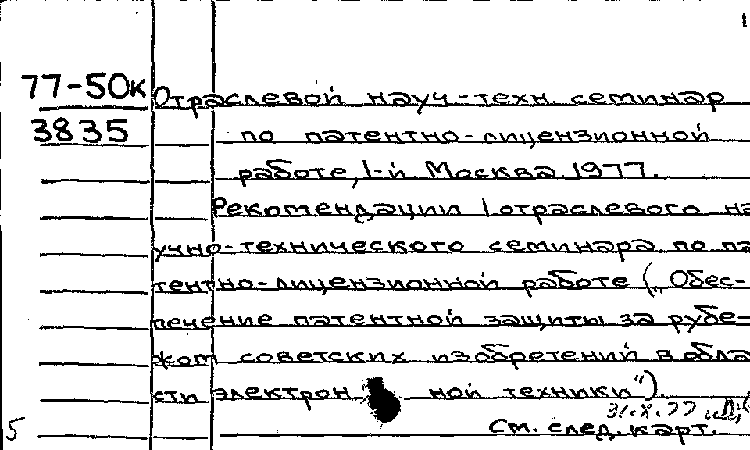 77-50к Отраслевой науч-техн. семинар
3835 по патентно-лицензионной
работе, 1-й. Москва. 1977.
Рекомендации 1 отраслевого на
учно-технического семинара по па
тентно-лицензионной работе („Обес-
печение патентной защиты за рубе-
жом советских изобретений в обла
сти электрон ной техники").
31.X.77
5 См. след. карт.